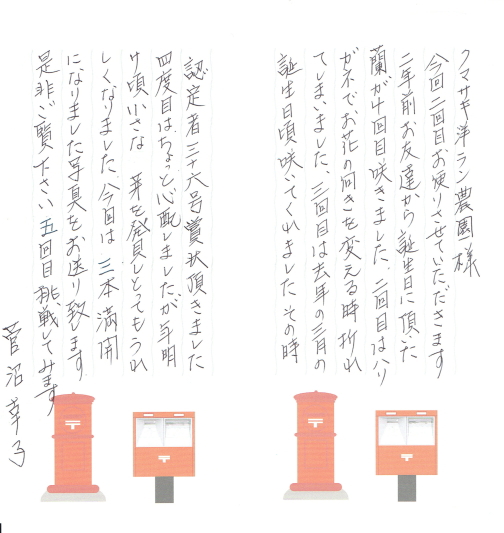 クマサキ洋ラン農園様
今回二回目お便りさせていただきます
二年前お友達から誕生日に頂いた
蘭が四回目咲きました、二回目はハリ
ガネでお花の向きを変える時折れ
てしまいました、三回目は去年の三月の
誕生日頃咲いてくれました その時
認定者三十六号賞状頂きました
四度目はちょっと心配しましたが年明
け頃小さな 芽を発見しとてもうれ
しくなりました、今回は 三本満開
になりました写真をお送り致します
是非ご覧下さい 五回目挑戦してみます
菅沼幸子